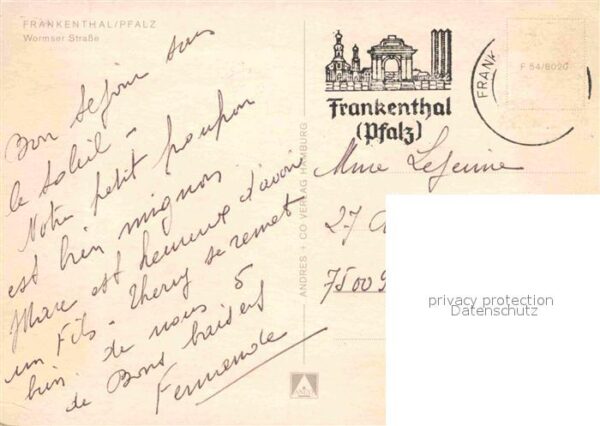 FRANKENTHAL/PFALZ
Wormser Straße
Bon séjour sous
le soleil -
Notre petit poupon
est bien mignon
Marc est heureux d'avoir
un Fils - Thierry se remet
bien. de nous 5
de Bons baisers
Fernande
ANDRES + CO VERLAG HAMBURG
Frankenthal
(Pfalz)
FRANK
F 54/8020
Mme Lejeune
27
7500
privacy protection
Datenschutz